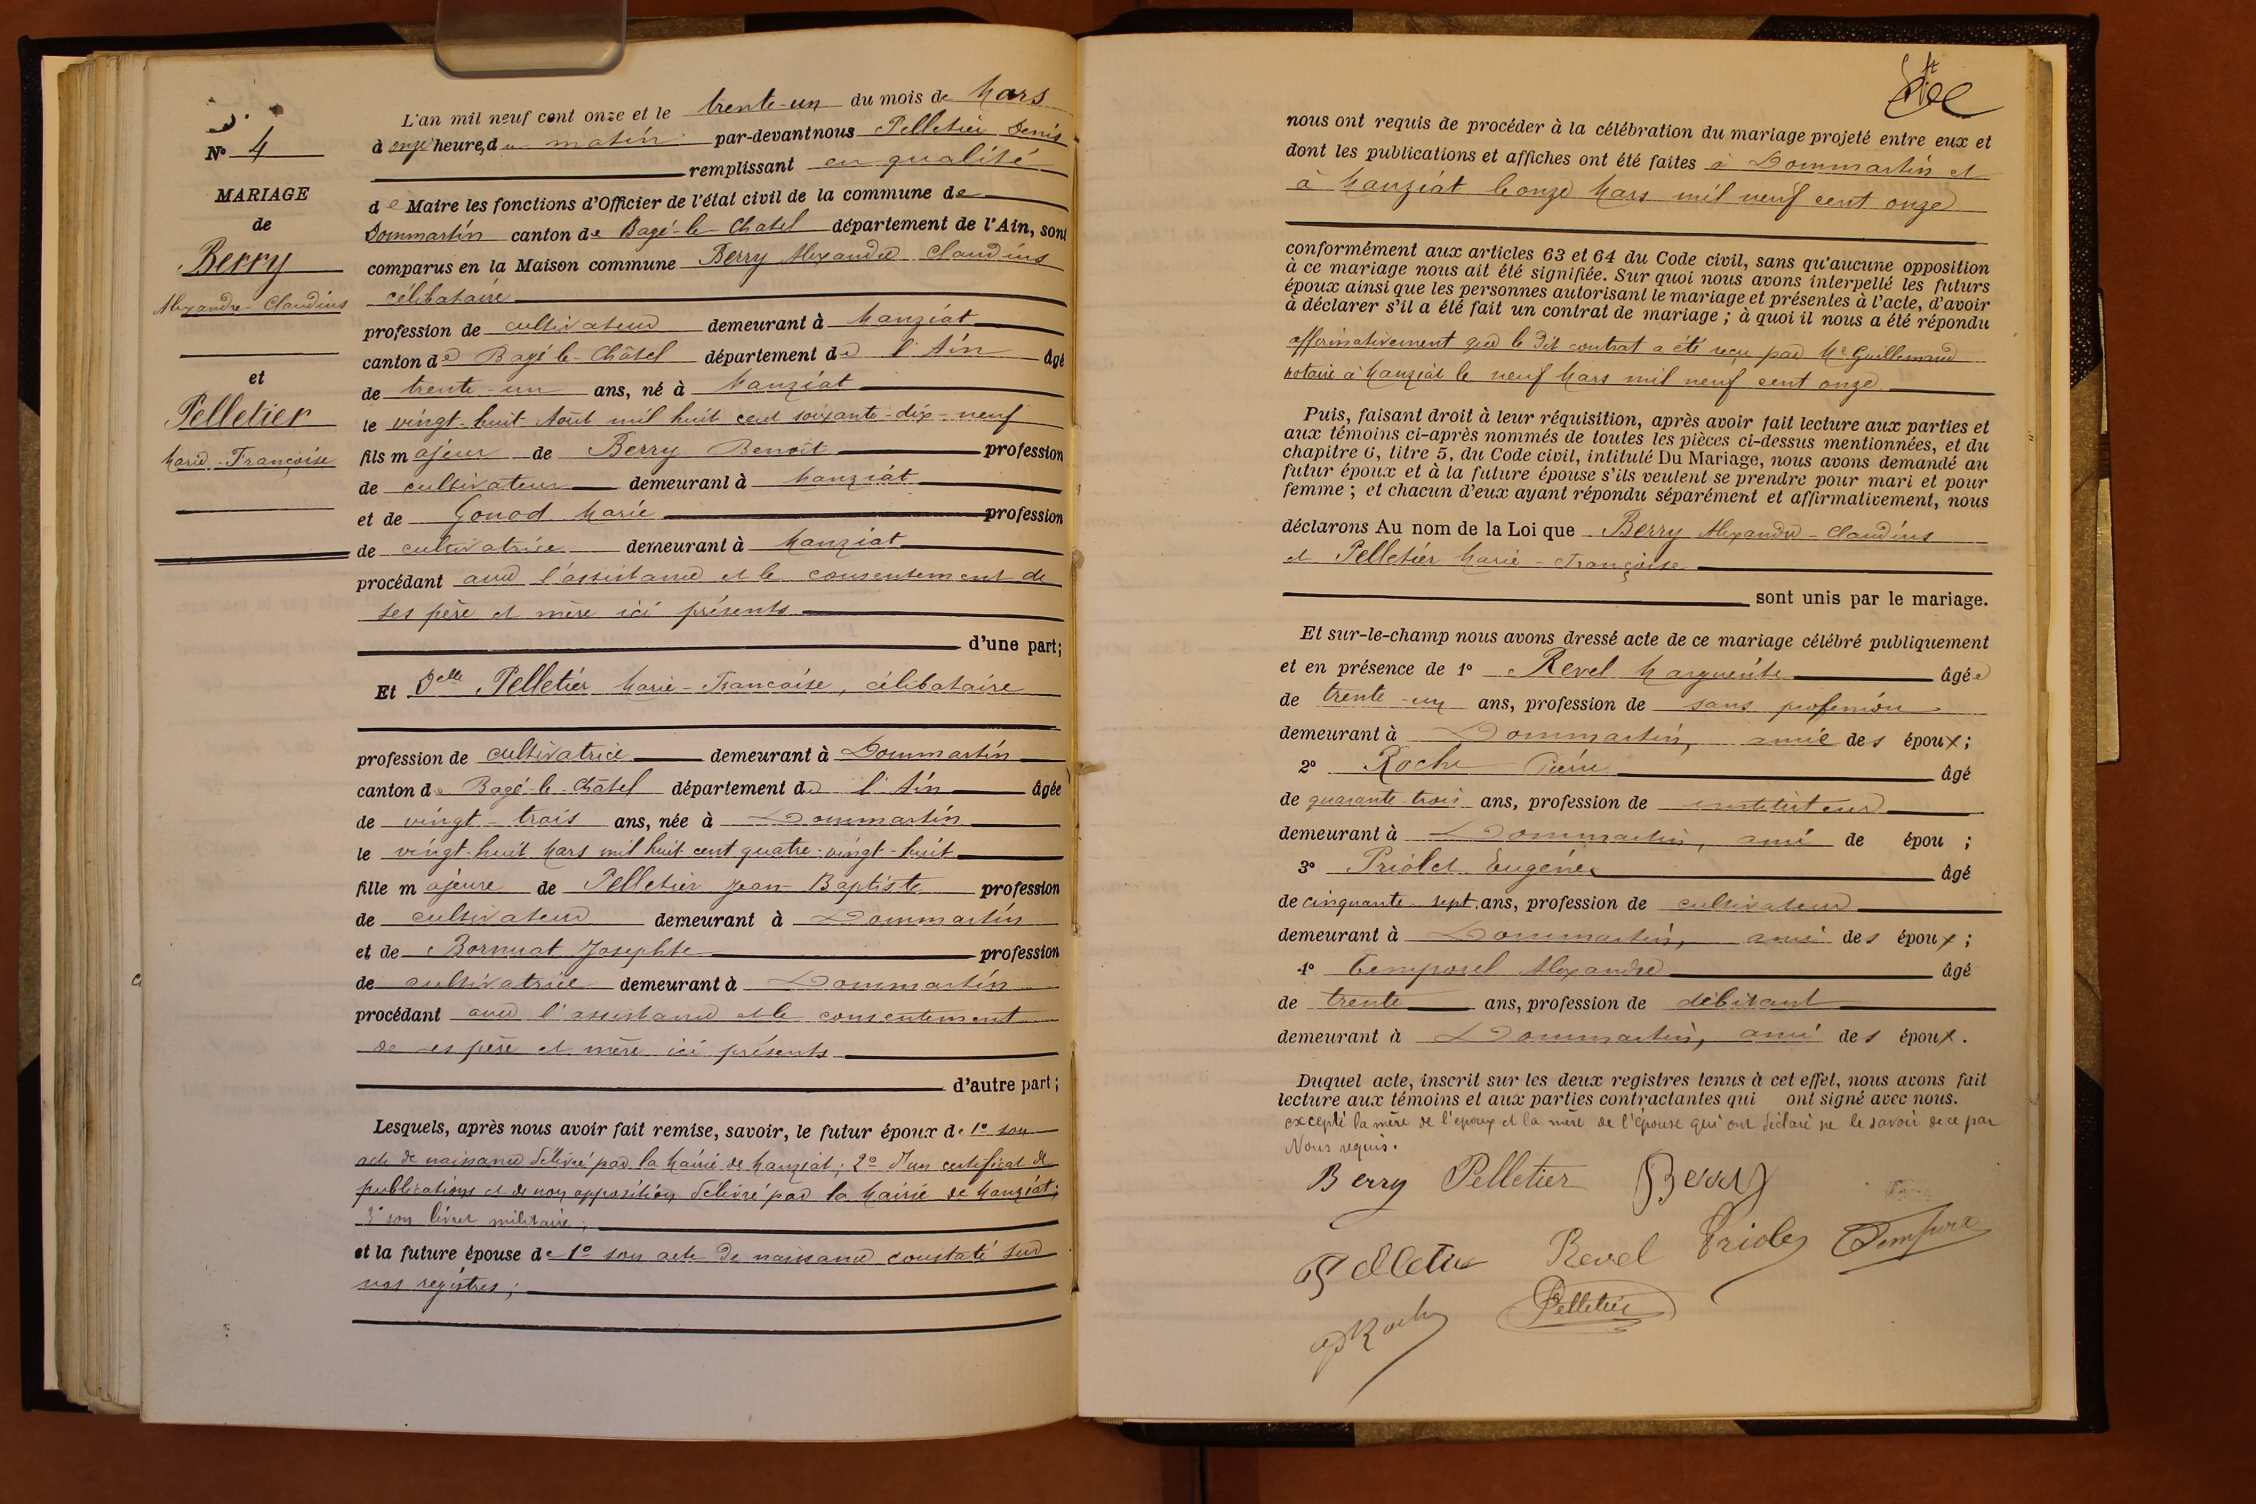 N° 4
MARIAGE
de
Berry
Alexandre-Claudius
et
Pelletier
Marie-Françoise
L'an mil neuf cent onze et le trente-un du mois de Mars
à onze heures, du matin par-devant nous Pelletier Denis
remplissant en qualité
de Maire les fonctions d'Officier de l'état civil de la commune de
Dommartin canton de Bagé-le-Chatel département de l'Ain, sont
comparus en la Maison commune Berry Alexandre Claudius
célibataire
profession de cultivateur demeurant à Manziat
canton de Bagé-le-Châtel département de l'Ain âgé
de trente-un ans, né à Manziat
le vingt-huit Août mil huit cent soixante-dix-neuf
fils majeur de Berry Benoit profession
de cultivateur demeurant à Manziat
et de Gonod Marie profession
de cultivatrice demeurant à Manziat
procédant avec l'assistance et le consentement de
ses père et mère ici présents
d'une part;
Et Delle Pelletier Marie-Francoise, célibataire
profession de cultivatrice demeurant à Dommartin
canton de Bagé-le-Châtel département de l'Ain âgée
de vingt-trois ans, née à Dommartin
le vingt-huit Mars mil huit cent quatre-vingt-huit
fille majeure de Pelletier Jean Baptiste profession
de cultivateur demeurant à Dommartin
et de Bornuat Josephte profession
de cultivatrice demeurant à Dommartin
procédant avec l'assistance et le consentement
de ses père et mère ici présents
d'autre part;
Lesquels, après nous avoir fait remise, savoir, le futur époux de 1° son
acte de naissance délivré par la Mairie de Manziat; 2° d'un certificat de
publications et de non opposition délivré par la Mairie de Manziat;
3° son livret militaire;
et la future épouse de 1° son acte de naissance constaté sur
nos registres;
nous ont requis de procéder à la célébration du mariage projeté entre eux et
dont les publications et affiches ont été faites à Dommartin et
à Manziat le onze Mars mil neuf cent onze
conformément aux articles 63 et 64 du Code civil, sans qu'aucune opposition
à ce mariage nous ait été signifiée. Sur quoi nous avons interpellé les futurs
époux ainsi que les personnes autorisant le mariage et présentes à l'acte, d'avoir
à déclarer s'il a été fait un contrat de mariage; à quoi il nous a été répondu
affirmativement que le dit contrat a été reçu par Me Guillemaud
notaire à Manziat le neuf Mars mil neuf cent onze
Puis, faisant droit à leur réquisition, après avoir fait lecture aux parties et
aux témoins ci-après nommés de toutes les pièces ci-dessus mentionnées, et du
chapitre 6, titre 5, du Code civil, intitulé Du Mariage, nous avons demandé au
futur époux et à la future épouse s'ils veulent se prendre pour mari et pour
femme; et chacun d'eux ayant répondu séparément et affirmativement, nous
déclarons Au nom de la Loi que Berry Alexandre-Claudius
et Pelletier Marie-Françoise
sont unis par le mariage.
Et sur-le-champ nous avons dressé acte de ce mariage célébré publiquement
et en présence de 1° Revel Marguerite âgée
de trente-un ans, profession de sans profession
demeurant à Dommartin, amie des époux;
2° Roche Pierre âgé
de quarante-trois ans, profession de instituteur
demeurant à Dommartin, ami de épou ;
3° Priolet Eugène âgé
de cinquante-sept ans, profession de cultivateur
demeurant à Dommartin, ami des époux;
4° Temporel Alexandre âgé
de trente ans, profession de débitant
demeurant à Dommartin, ami des époux.
Duquel acte, inscrit sur les deux registres tenus à cet effet, nous avons fait
lecture aux témoins et aux parties contractantes qui ont signé avec nous.
excepté la mère de l'époux et la mère de l'épouse qui ont déclaré ne le savoir de ce par
Nous requis.
Berry Pelletier Berry
Pelletier Revel Priolet
PRoche Pelletier